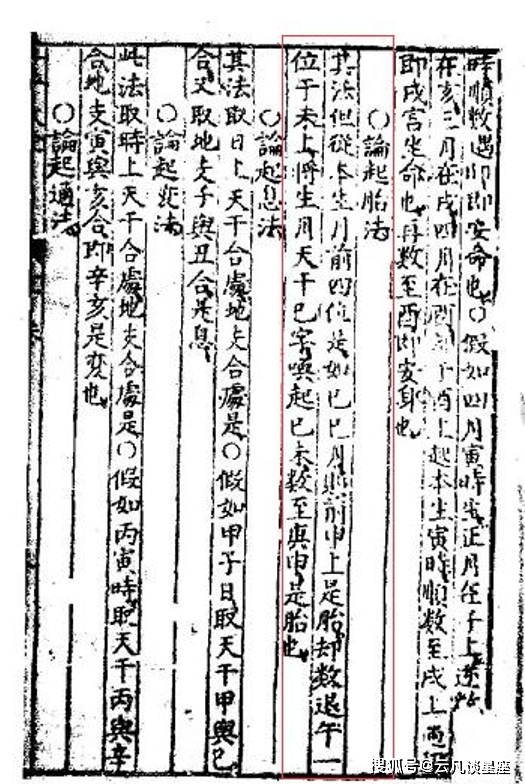 時順數遇卯即安命也○假如四月寅時生正月在子上逆數
在亥三月在戌四月在酉于酉上起本生寅時順數至戌上遇
即戌宮坐命也再數至酉即安身也
○論起胎法
其法但從本生月前四位是如己巳月則前申上是胎却數退午一
位于未上將生月天干己字喚起己未數至庚申是胎也
○論起息法
其法取日上天干合處地支合處是○假如甲子日取天干甲與己
合又取地支子與丑合是息
○論起変法
此法取時上天干合處地支合處是○假如丙寅時取天干丙與辛
合地支寅與亥合即辛亥是変也
○論起通法
搜狐号@云凡谈星座